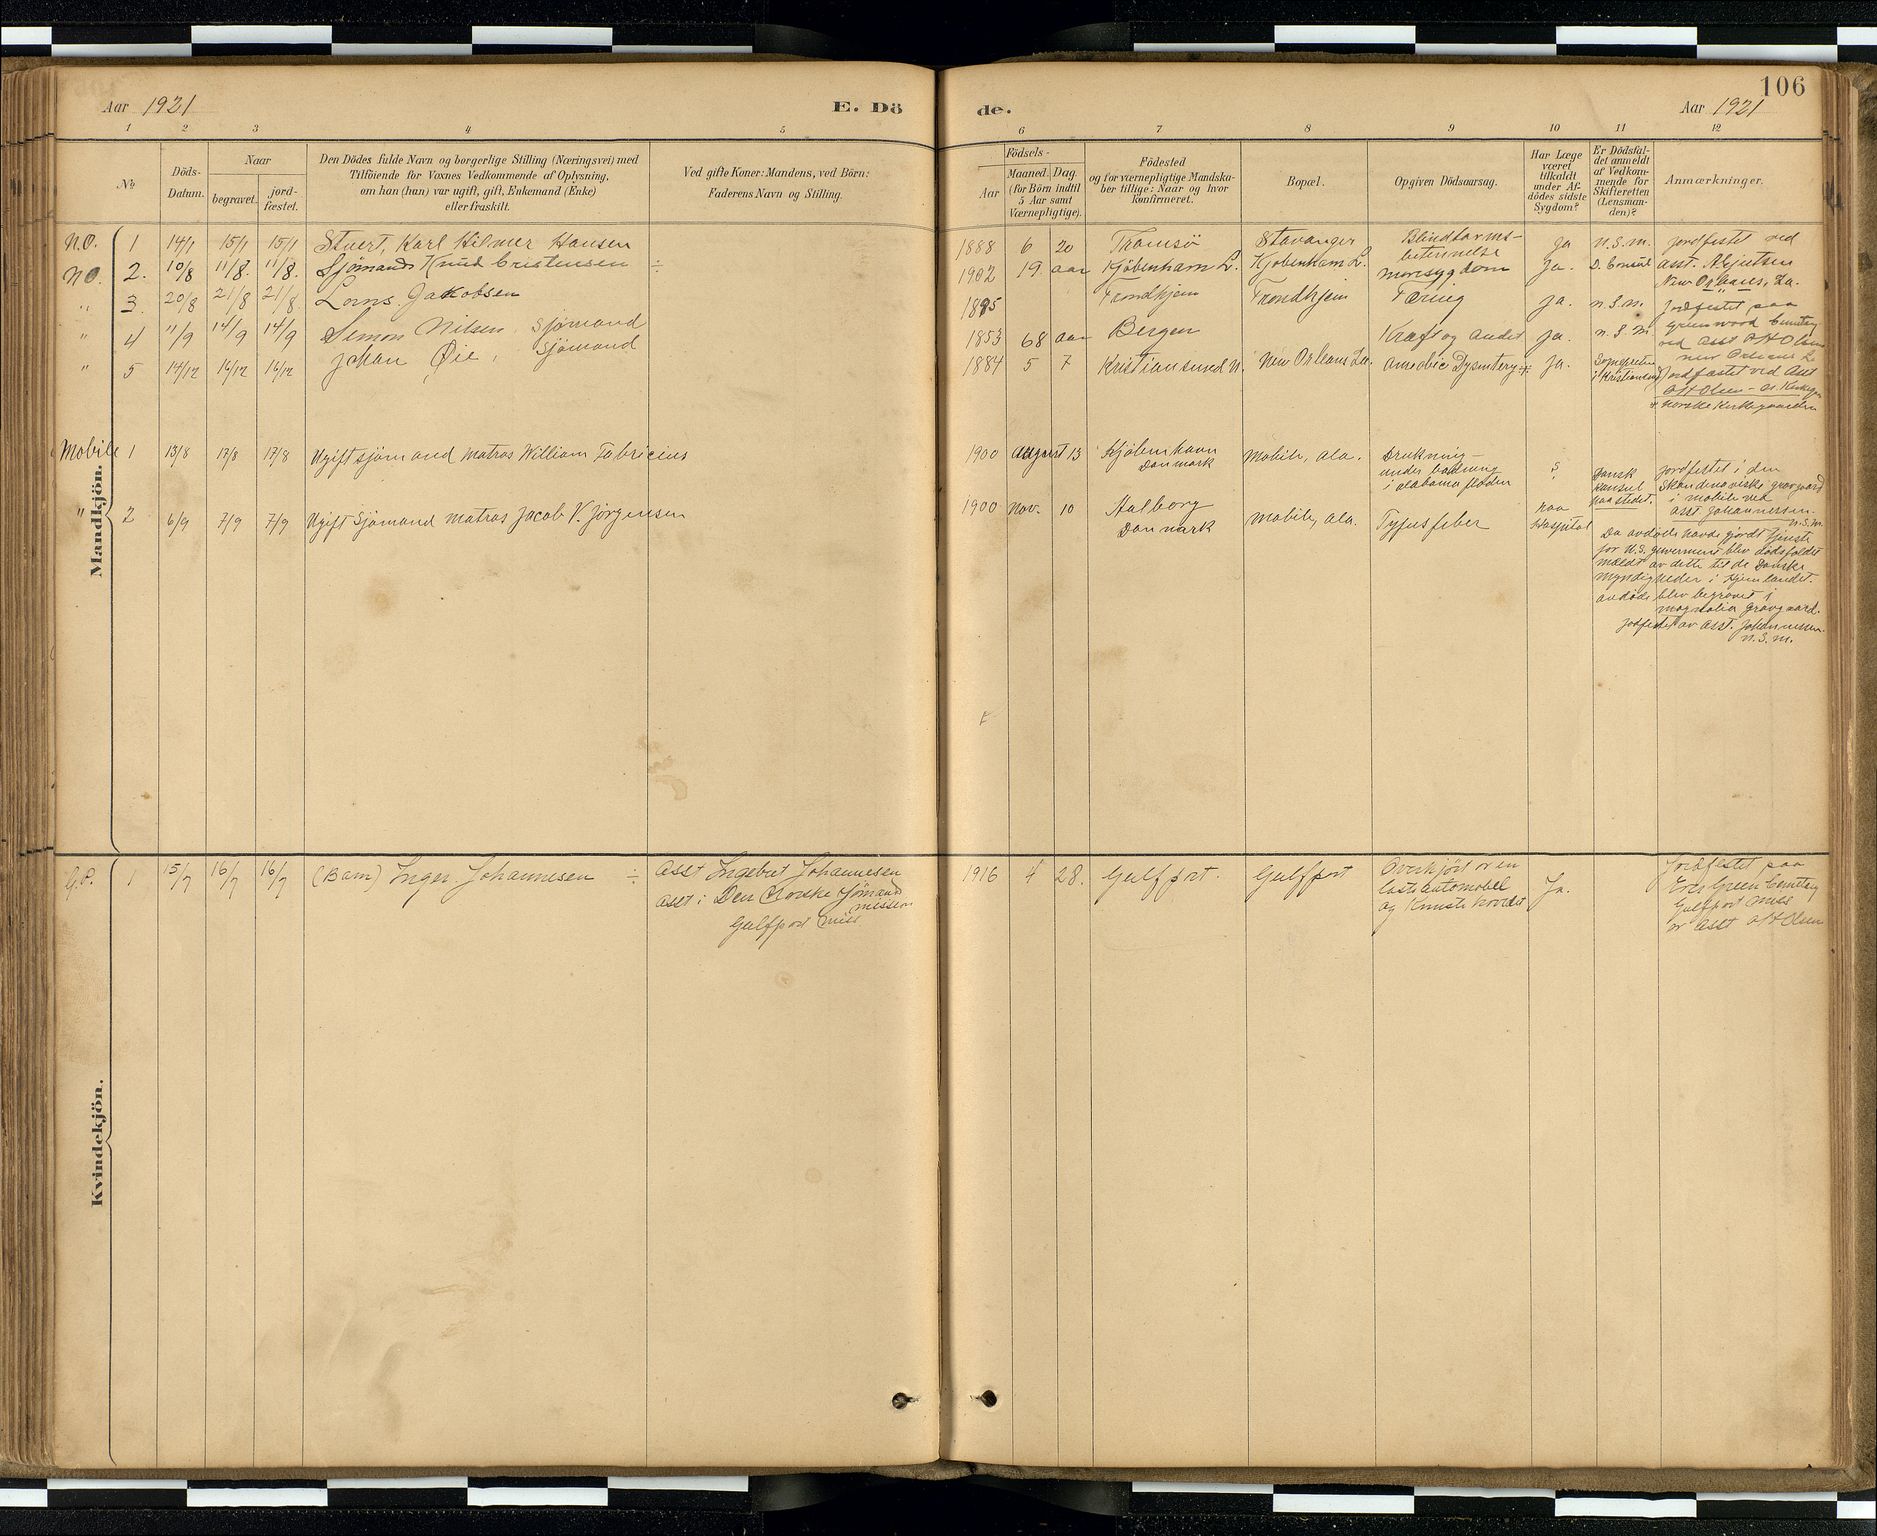 106
Aar 1921
E. Dö
de.
Aar 1921
1 2 3 4 5 6 7 8 9 10 11 12
No
Döds-
Datum.
Naar
begravet.
jord-
fæstet.
Den Dödes fulde Navn og borgerlige Stilling (Næringsvei) med
Tilföiende for Voxnes Vedkommende af Oplysning,
om han (hun) var ugift, gift, Enkemand (Enke)
eller fraskilt.
Ved gifte Koner: Mandens, ved Börn:
Faderens Navn og Stilling.
Födsels-
Aar
Maaned. Dag.
(for Börn indtil
5 Aar samt
Værnepligtige).
Födested
og for værnepligtige Mandska-
ber tillige: Naar og hvor
konfirmeret.
Bopæl.
Opgiven Dödsaarsag.
Har Læge
været
tilkaldt
under Af-
dödes sidste
Sygdom?
Er Dödsfal-
det anmeldt
af Vedkom-
mende for
Skifteretten
(Lensman-
den)?
Anmærkninger.
Mandkjön.
N.O. 1 14/1 15/1 15/1 Stuert, Karl Hilmer Hansen 1888 6 20 Tromsö Stavanger Blindtarms-
betennelse Ja N.S.M. Jordfestet ved
NO. 2. 10/8 11/8. 11/8. Sjömand Knud Cristensen ÷ 1902 19 aar Kjöbenhavn L. Kjöbenhavn L. Ja. D. Consul Asst.
New Orleans, La.
" 3. 20/8 21/8 21/8 Jakobsen Trondhjem Trondhjem Tæring Ja. N.S.M. Jordfestet paa
Greenwood Cemetery
" 4 11/9 14/9 14/9 Simon Nilsen, Sjömand 1853 68 aar Bergen Kræft og andet Ja. N.S.M
ved Asst O H Olsen
New Orleans La
" 5 14/12 16/12 16/12 Johan Öie, Sjömand 1884 5 7 Kristiansund N. New Orleans La. Amoebic Dysentery Ja.
i Kristiansund
Jordfæstet ved Asst
O H Olsen
Norske Kirkegaarden
Mobile 1 13/8 17/8 17/8 Ugift sjömand matros William Fabricius 1900 August 13 Kjöbenhavn
Danmark
Mobile, Ala. Drukning
under badning
i Alabama floden
?
Dansk
Konsul
paa stedet.
Jordfestet i den
Skandinaviske gravgaard
i Mobile ved
Asst Johannessen.
N.S.M.
" 2 6/9 7/9 7/9 Ugift Sjömand matros Jacob V. Jörgensen 1900 Nov. 10 Aalborg
Danmark
Mobile, Ala. Tyfusfeber
paa
Hospital
Da avdöde havde gjordt tjeneste
for U.S. guvernment blev dödsfaldet
meldt av dette til de Danske
myndigheder i hjemlandet.
Avdöde blev begravet i
Magnolia gravgaard.
Jodfestet av Asst. Johannessen.
N.S.M.
Kvindekjön.
G.P. 1 15/7 16/7 16/7 (Barn) Inger Johannesen ÷ Asst Ingebret Johannesen
Asst i Den Norske Sjömand
mission
Gulfport Miss
1916 4 28. Gulfport. Gulfport Overkjört av en
lasteautomobil
og knuste hovedet
Ja.
Jordfestet paa
Ever Green Cemetery
Gulfport Miss
av Asst O H Olsen